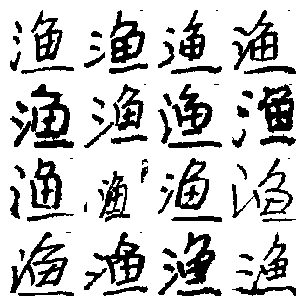 渔渔渔渔
渔渔渔渔
渔渔渔渔
渔渔渔渔